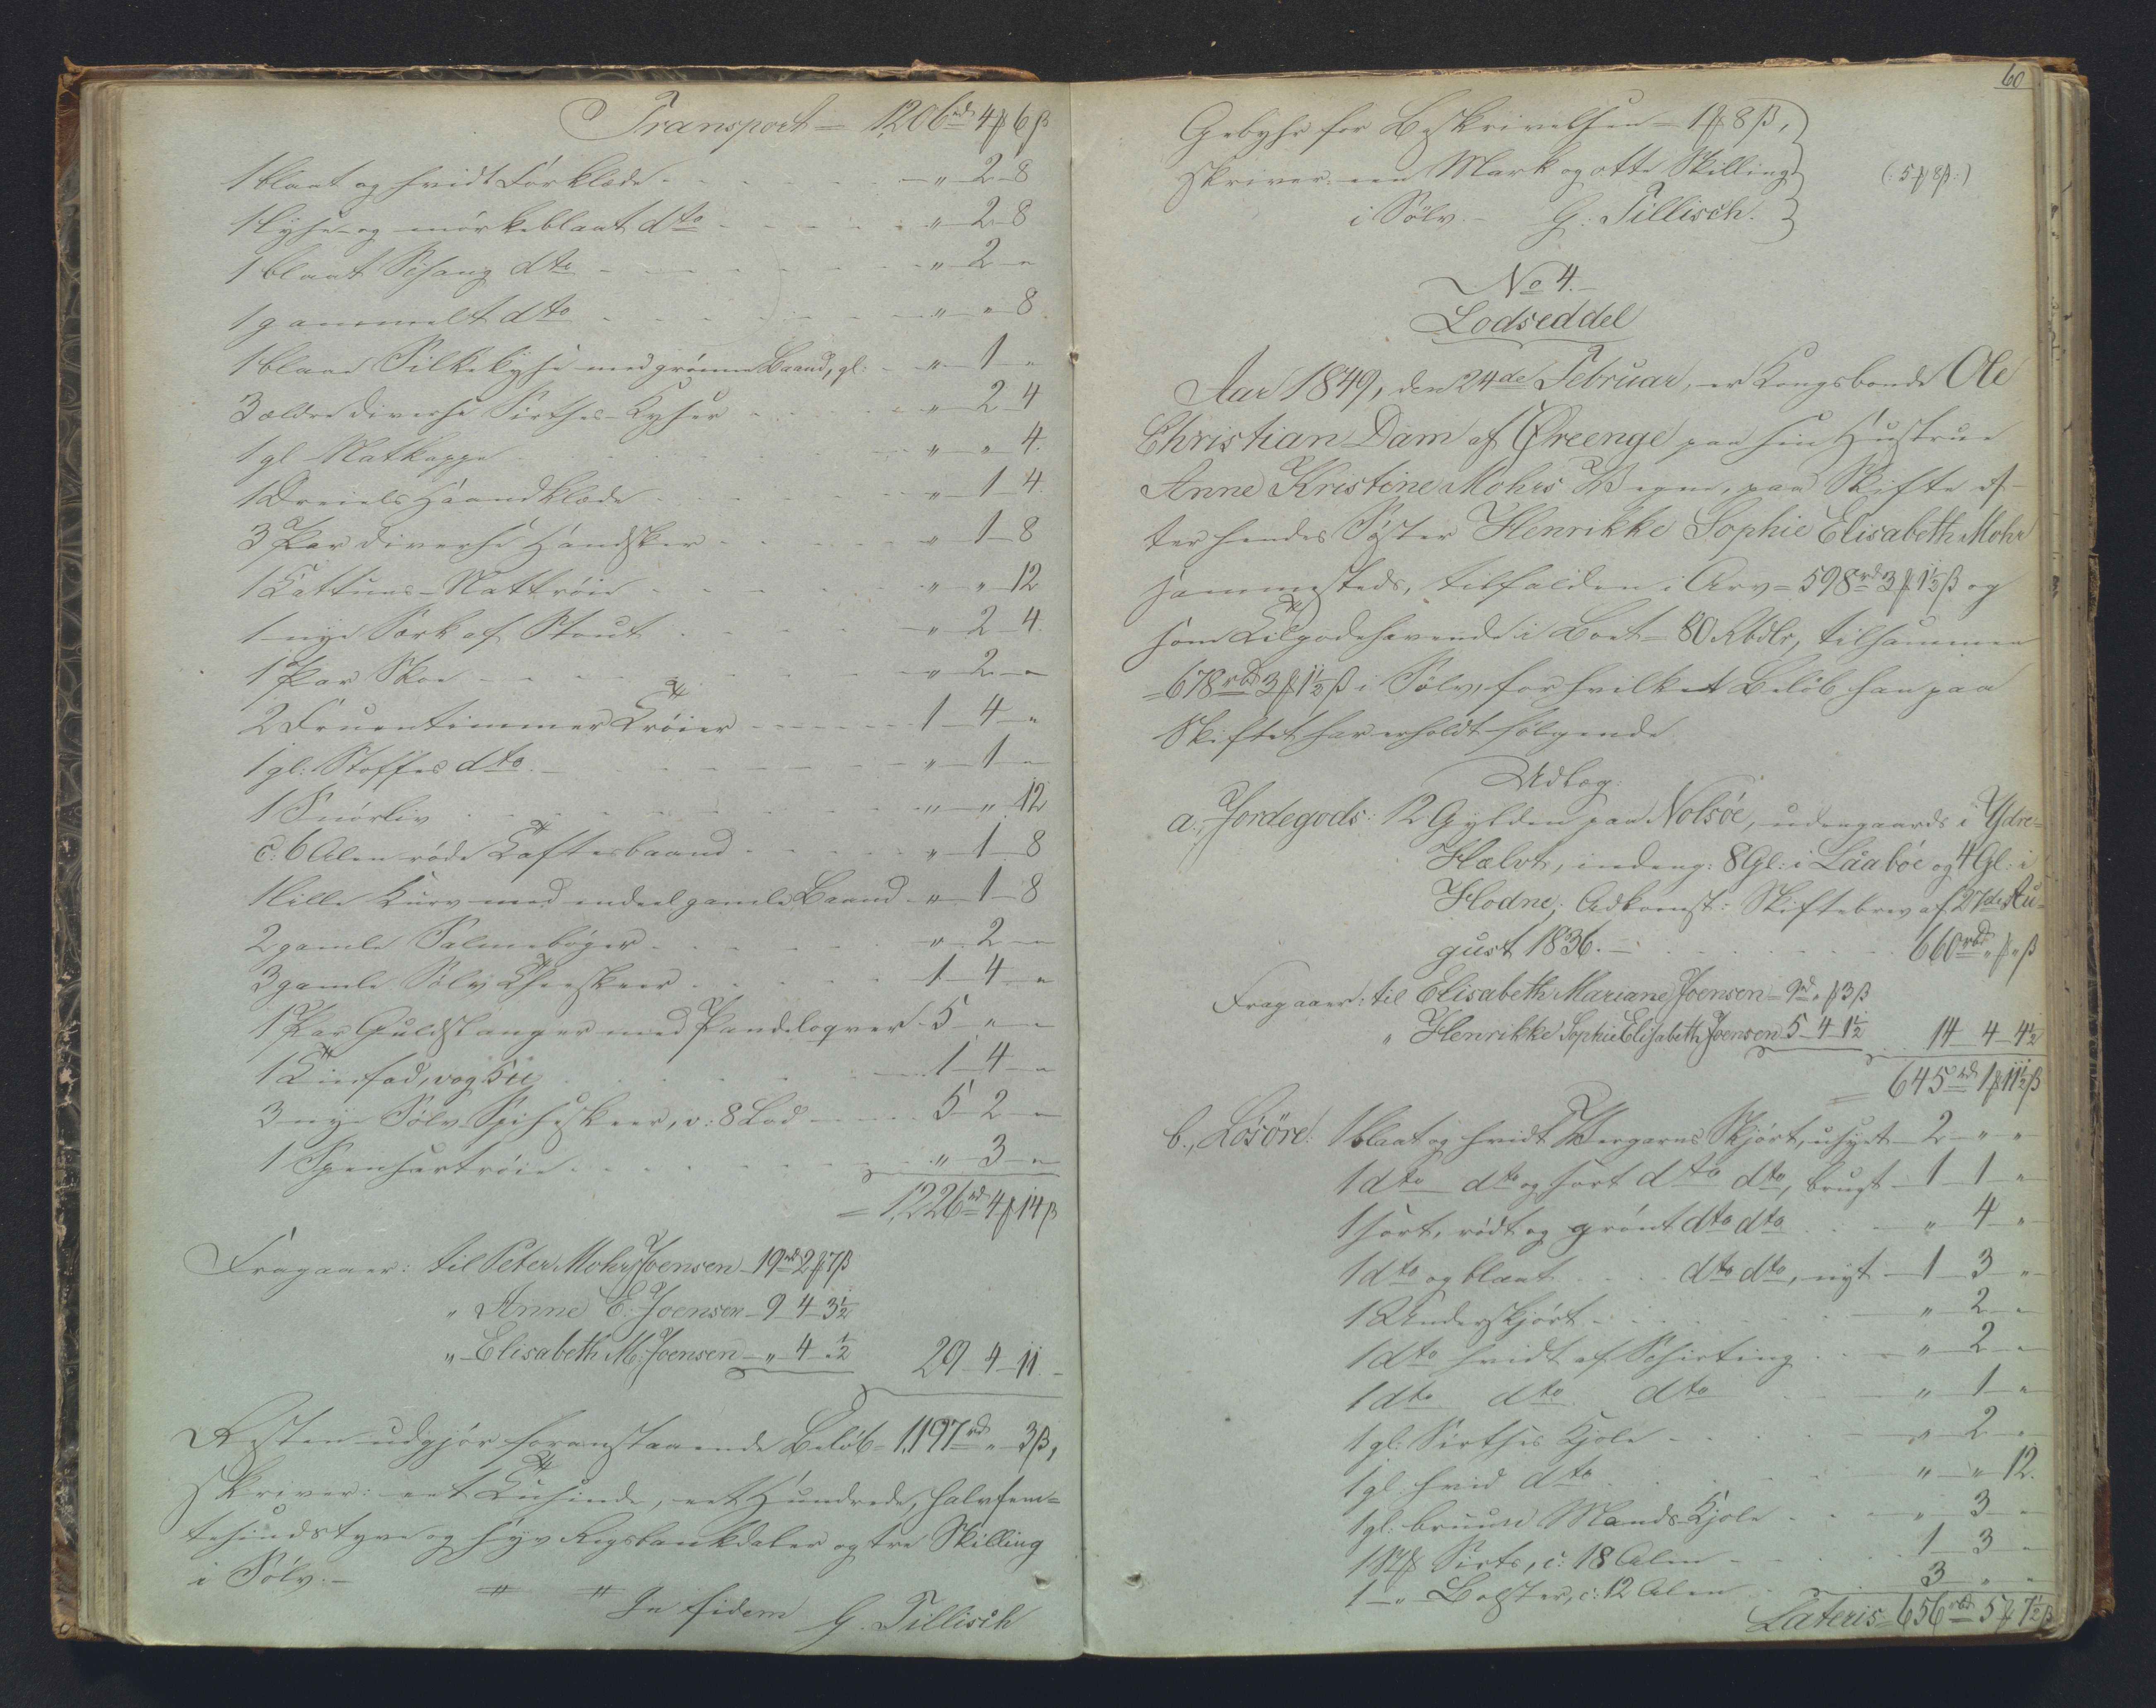 Transport = 1206rd 4 ₻ 6 ß
1 blaat og hvidt Forklæde - " 2 8
1 lyse- og mörkeblaat dto - " 2 8
1 blaat Sisang dto - " 2 "
1 gammelt dto - " " 8
1 blaae Silkekyse med grönne Baand, gl: - " 1 "
3 ældre diverse Sirthes-Kyser - " 2 4
1 gl Natkappe - " " 4
1 Dreiels Haandklæde - " 1 4
3 Par diverse Handsker - " 1 8
1 Kattuns-Nattröie - " " 12
1 nye Særk af Stout - " 2 4
1 Par Skoe - " 2 "
2 Fruentimmer Tröier - 1 4 "
1 gl: Stoffes dto - " 1 "
1 Snörliv - " " 12
c: 6 Alen röde Taftesbaand - " 1 8
1 lille Kurv med endeel gamle Baand - " 1 8
2 gamle Salmebøger - " 2 "
3 gamle Sölv Theeskeer - 1 4 "
1 Par Guldstanger med Pandeloqver - 5 " "
1 Tinfad, vog - 1 4 "
3 nye Sölv Spiseskeer, v: 8 Lod - 5 2 "
1 Spensertröie - " 3 "
= 1,226rd 4 ₻ 14 ß
Fragaaer: til Peter Mohr Joensen 19rd 2 ₻ 7 ß
" Anne E. Joensen - 9 4 3½
" Elisabeth M. Joensen - " 4 ½ 29 4 11 -
Resten udgjör foranstaaende Belöb = 1,197rd " 3 ß,
skriver: eet Tusinde, eet Hundrede, halvfem=
tesindstyve og syv Rigsbankdaler og tre Skilling
i Sölv. -
In fidem G. Tillisch
60
Gebyhr for Beskrivelsen = 1 ₻ 8 ß,
skriver een Mark og otte Skilling (: 5 ₻ 8 ß :)
i Sölv. - G. Tillisch.
No 4. -
Lodseddel
Aar 1849, den 24de Februar, er Kongsbonde Ole
Christian Dam af Öreenge paa sin Hustrue
Anne Kristine Mohrs Vegne, paa Skifte ef-
ter hendes Söster Henrikke Sophie Elisabeth Mohr
sammesteds, tilfalden i Arv = 598rd 3 ₻ 1½ ß og
som Tilgodehavende i Boet = 80 Rbdlr, tilsammen
= 678rbd 3 ₻ 1½ ß i Sölv, for hvilket Belöb han paa
Skiftet har erholdt fölgende
Udlæg:
a., Jordegods: 12 Gylden paa Nolsöe, udengaards i Ydre-
Halvt, indeng: 8 Gl: i Läaböe og 4 Gl: i
Hodne; Adkomst: Skiftebrev af 27de Au-
gust 1836. - 660rbd " ₻ " ß
Fragaaer: til Elisabeth Mariane Joensen = 9rd " ₻ 3 ß
" Henrikke Sophie Elisabeth Joensen 5 4 1½ 14 4 4½
= 645rd 1 ₻ 11½ ß
b., Lösöre: 1 blaat og hvidt Vergarns Skjört, usyet - 2 " "
1 dto dto og sort dto dto, brugt - 1 1 "
1 sort, rödt og grönt dto dto - " 4 "
1 dto og blaat dto dto, nyt - 1 3 "
1 Underskjört - " 2 "
1 dto hvidt af Schirting - " 2 "
1 dto dto dto - " 1 "
1 gl: Sirthes Kjole - " 2 "
1 gl. hvid dto - " " 12.
1 gl: bruun Mands Kjole - " 3 "
1 Stk Sirts, c: 18 Alen - 1 3 "
1 " Bolster, c: 12 Alen - 3 " "
Lateris = 656rbd 5 ₻ 7½ ß